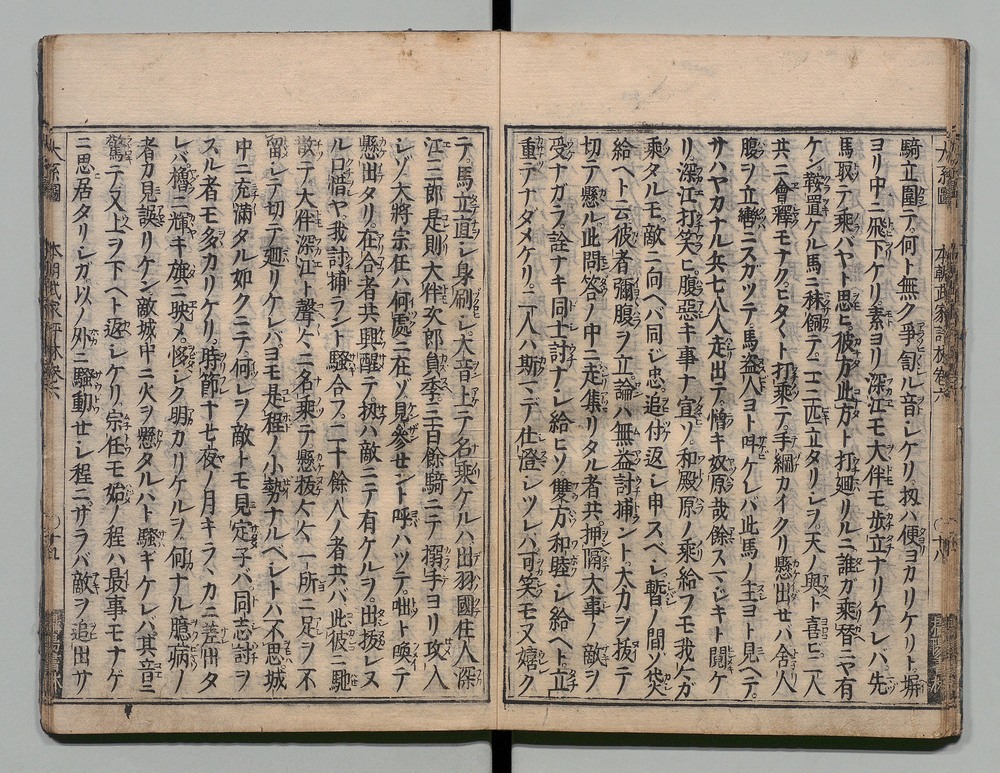 騎立圍テ。何ト無ク爭訇ル音シケリ。扨ハ便ヨカリケリト。塀
ヨリ中ニ飛下ケリ。素ヨリ深江モ大伴モ歩立ナリケレバ。先
馬取テ乘バヤト思ヒ。彼方此方ト打廻リルニ。誰ガ乘替ニヤ有
ケン。鞍置ケル馬ニ秣飼テ。二三匹立タリシヲ。天ノ與ト喜ヒ。二人
共ニ會釋モナク。ヒタ〱ト打乘テ。手綱カイクリ懸出セバ。舎人
腹ヲ立。轡ニスガツテ。馬盗人ヨト叫ケレバ。此馬ノ主ヨト見ヘテ。
サハヤカナル兵七八人走出テ。憎キ奴原哉。餘スマジキト鬩ケ
リ。深江打笑ヒ。腹惡キ事ナ宣ソ。和殿原ノ乘給フモ我〱ガ
乘タルモ。敵ニ向ヘバ同シ忠。追付返シ申スベシ。暫ノ間ソ。貸
給ヘト云。彼者彌腹ヲ立。論ハ無益。討捕ントテ。太刀ヲ拔テ
切テ懸ル。此問答ノ中ニ走集リタル者共。押隔。大事ノ敵ヲ
受ナガラ。詮ナキ同士討ナシ給ヒソ。雙方和睦シ給ヘト。立
重テナダメケリ。二人ハ斯マデ仕澄シツレハ。可笑モ又嬉ク
テ。馬立直シ身刷シ。大音上テ名乘ケルハ。出羽國住人深
江二郎是則。大伴次郎員季。三百餘騎ニテ搦手ヨリ攻入
シゾ。大將宗任ハ何處ニ在ゾ。見參セント呼ハツテ。咄ト喚テ
懸出タリ。在合者共興醒テ。扨ハ敵ニテ有ケルヲ。出拔レヌ
ル口惜ヤ。我討捕ラント騷合フ。二十餘人ノ者共ハ。此彼ニ馳
散テ。大伴深江ト聲〱ニ名乘テ。懸拔〱。一所ニ足ヲ不
留シテ切テ廻リケレバ。ヨモ是程ノ小勢ナルベシトハ不思。城
中ニ充滿タル如クニテ。何レヲ敵トモ見定子ハ。同志討ヲ
スル者モ多カリケリ。時節十七夜ノ月キラヽカニ差出タ
レバ。櫓ニ輝キ旗ニ映メ。夥シク明カリケルヲ。何ナル臆病ノ
者カ見誤リケン。敵城中ニ火ヲ懸タルハト騷キケレバ。其音ニ
驚テ又上ヲ下ヘト返シケリ。宗任モ始ノ程ハ最事モナゲ
ニ思居タリシガ。以ノ外ニ騷動セシ程ニ。サラバ敵ヲ追出サ